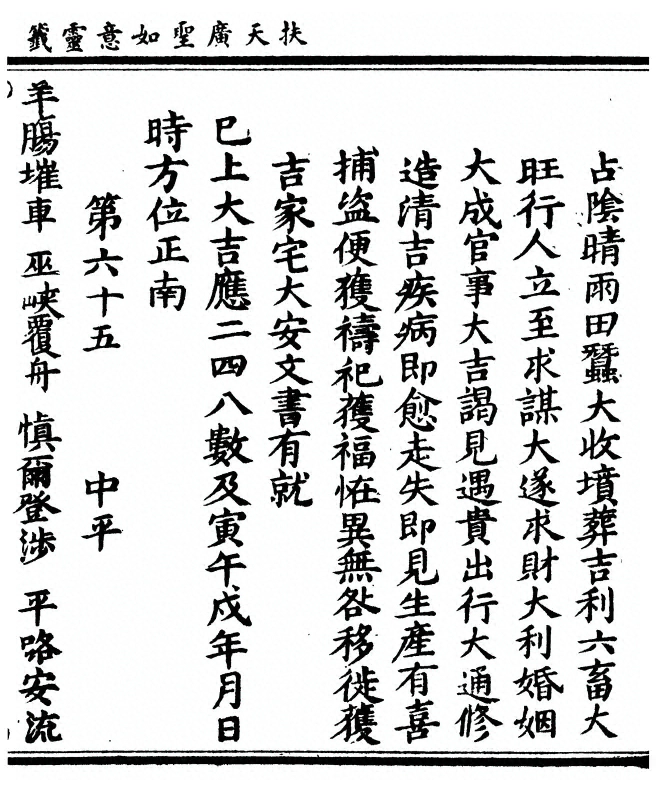 扶天廣聖如意靈籤
占陰晴雨田蠶大收墳葬吉利六畜大
旺行人立至求謀大遂求財大利婚姻
大成官事大吉謁見遇貴出行大通修
造清吉疾病即愈走失即見生產有喜
捕盜便獲禱祀獲福恠異無咎移徙獲
吉家宅大安文書有就
已上大吉應二四八數及寅午戍年月日
時方位正南
第六十五 中平
羊腸摧車 巫峽覆舟 慎爾登涉 平咯安流